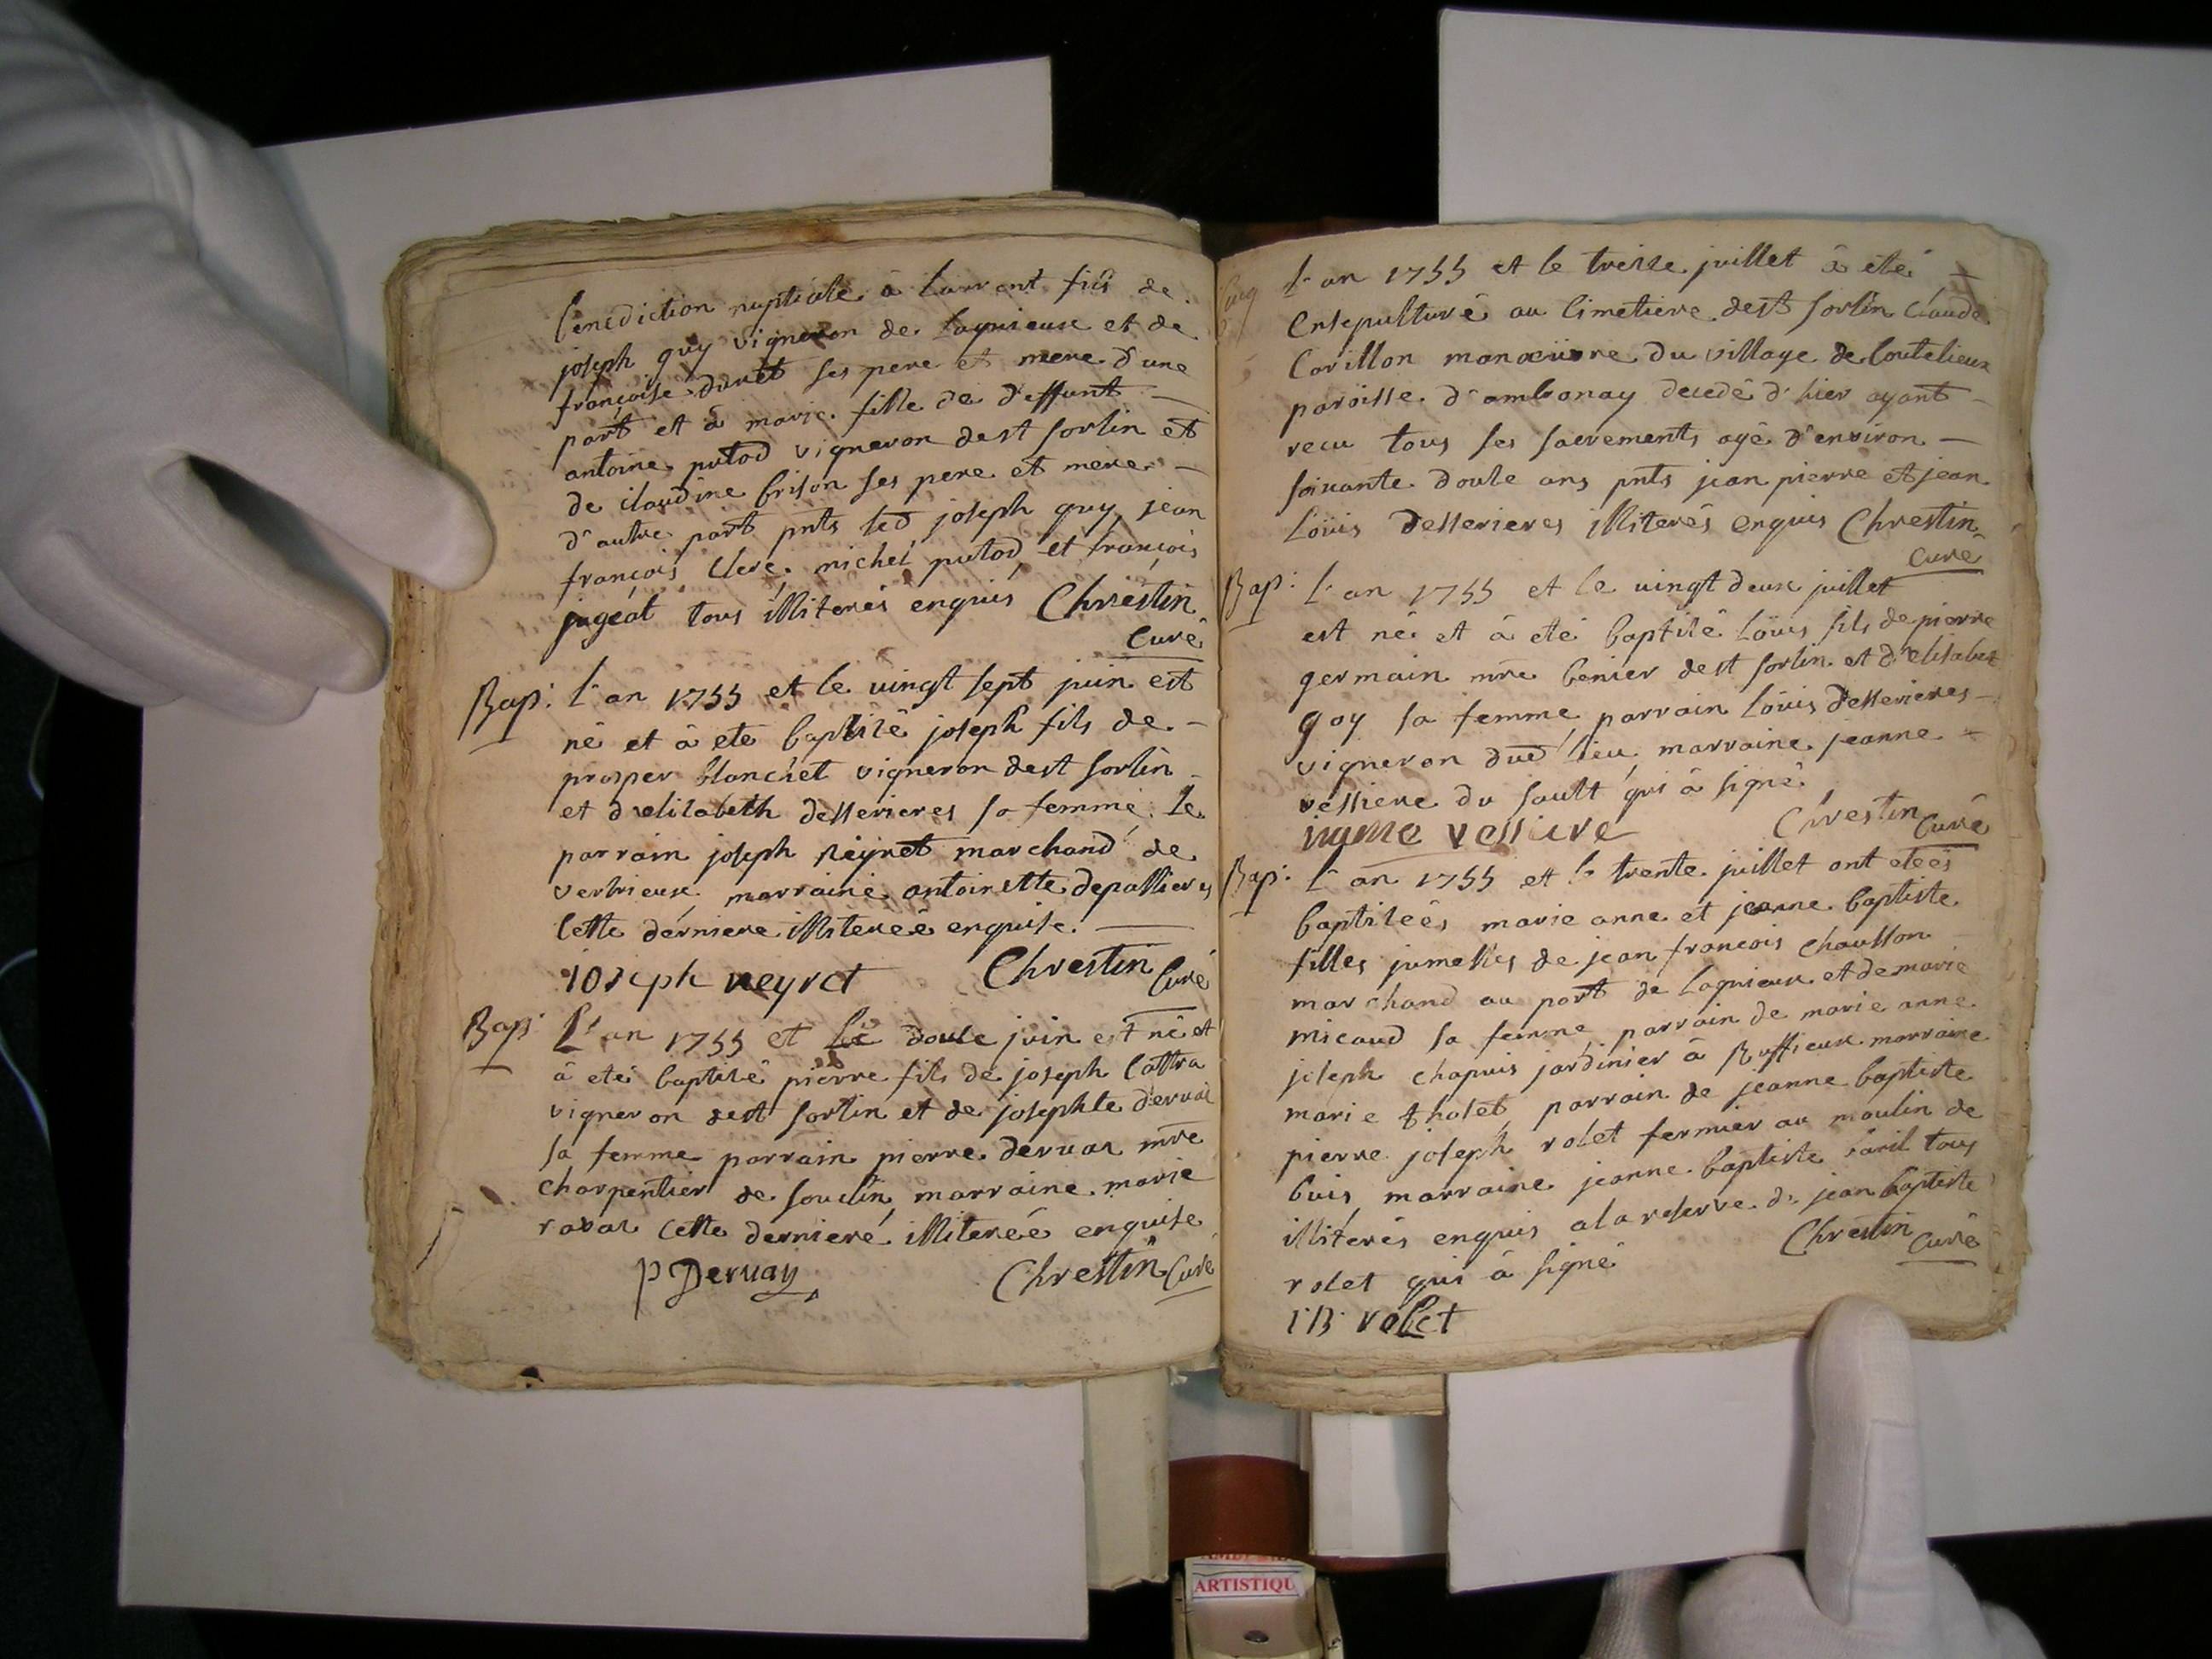 benediction nuptiale à laurent fils de
joseph guy vigneron de lagnieux et de
françoise duret ses pere et mere d'une
part et à marie fille de deffunt
antoine putod vigneron de st sorlin et
de claudine brison ses pere et mere
d'autre part pnts led joseph guy, jean
françois clerc, michel putod, et françois
jugeat tous illiterés enquis Chrestin
Curé
Bap: L'an 1755 et le vingt sept juin est
né et à eté baptisé joseph fils de
prosper blanchet vigneron de st sorlin
et d'elisabeth desserieres sa femme. Le
parrain joseph Neyret marchand de
vertrieux marraine antoinette depallieres
Cette derniere illiterée enquise.
ioseph neyret Chrestin Curé
Bap: L'an 1755 et le douse juin est né et
à eté baptisé pierre fils de joseph Cottra
vigneron de st sorlin et de josephte dervar
sa femme parrain pierre dervar mre
charpentier de souclin, marraine marie
ravar Cette derniere illiterée enquise
P Dervay Chrestin Curé
L'an 1755 et le treise juillet à été
Ensepulturé au Cimetiere de st sorlin Claude
Corillon manoeuvre du village de Coutelieux
paroisse d'ambronay decedé d'hier ayant
recu tous ses sacrements agé d'environ
soixante douse ans pnts jean pierre et jean
Loüis desserieres illiterés enquis Chrestin
Curé
Bap: L'an 1755 et le vingt deux juillet
est né et à eté baptisé Loüis fils de pierre
germain mre benier de st sorlin et d'elisabet
goy sa femme, parrain Loüis desserieres
vigneron dud lieu, marraine jeanne
vessiere du sault qui à signé
Chrestin Curé
Bap: L'an 1755 et le trente juillet ont eteés
baptiseés marie anne et jeanne baptiste
filles jumelles de jean francois Chausson
marchand au port de Lagnieux et de marie
micaud sa femme, parrain de marie anne
joseph chapuis jardinier à Ruffieux marraine
marie tholet, parrain de jeanne baptiste
pierre joseph rolet fermier au moulin de
buis, marraine jeanne baptiste savil tous
illiterés enquis a la reserve de jean baptiste
rolet qui à signé Chrestin Curé
IB rolet
ARTISTIQU